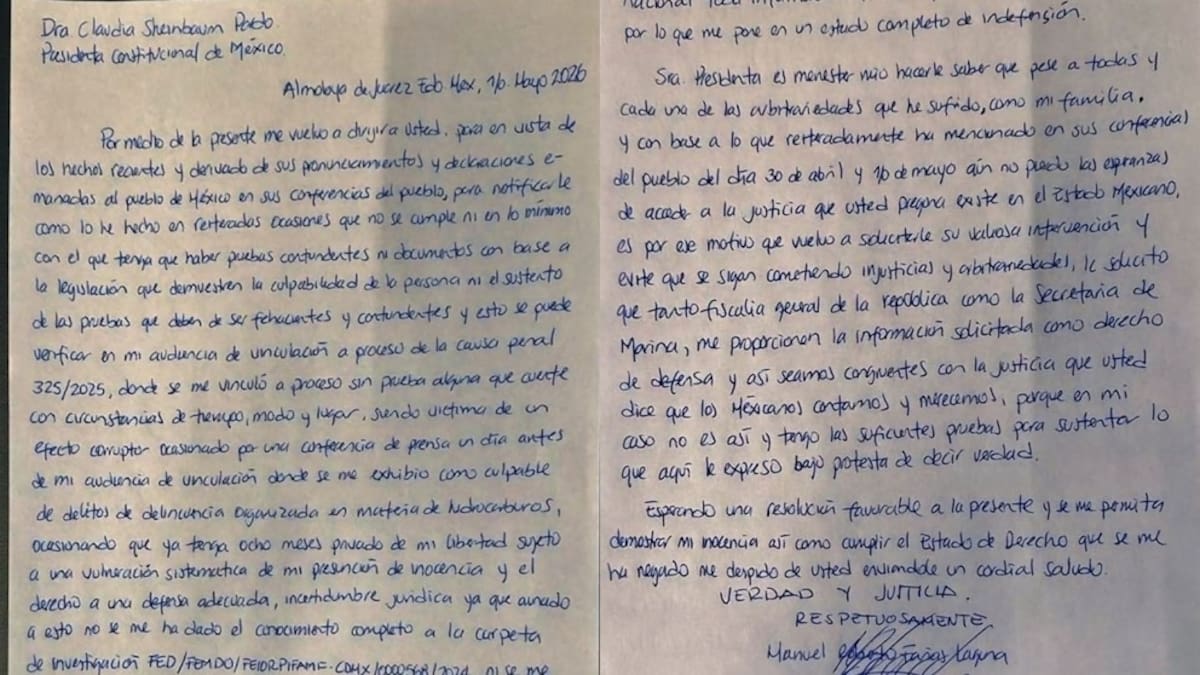 Dra Claudia Sheinbaum Pardo.
Presidenta Constitucional de México.
Almoloya de Juárez Edo. Mex, 16. Mayo 2026
Por medio de la presente me vuelvo a dirigir a Usted, para en vista de
los hechos recientes y derivado de sus pronunciamientos y declaraciones e-
manadas al pueblo de México en sus conferencias del pueblo, para notificarle
como lo he hecho en reiteradas ocasiones que no se cumple ni en lo mínimo
con el que tenga que haber pruebas contundentes ni documentos con base a
la legislación que demuestren la culpabilidad de la persona ni el sustento
de las pruebas que deben de ser fehacientes y contundentes y esto se puede
verificar en mi audiencia de vinculación a proceso de la causa penal
325/2025, donde se me vinculó a proceso sin prueba alguna que cuente
con circunstancias de tiempo, modo y lugar, siendo víctima de un
efecto corruptor ocasionado por una conferencia de prensa un día antes
de mi audiencia de vinculación donde se me exhibio como culpable
de delitos de delincuencia organizada en materia de hidrocarburos,
ocasionando que ya tenga ocho meses privado de mi libertad sujeto
a una vulneración sistematica de mi presunción de inocencia y el
derecho a una defensa adecuada, incertidumbre juridica ya que aunado
a esto no se me ha dado el conocimiento completo a la carpeta
de investigación FED/FEMDO/FEIDRPIFAME-CDMX/0000568/2024 ni se me
nacional
por lo que me pone en un estado completo de indefensión.
Sra. Presidenta es menester mío hacerle saber que pese a todas y
cada una de las arbitrariedades que he sufrido, como mi familia,
y con base a lo que reiteradamente ha mencionado en sus conferencias
del pueblo del día 30 de abril y 16 de mayo aún no pierdo las esperanzas
de acceder a la justicia que usted pregona existe en el Estado Mexicano,
es por ese motivo que vuelvo a solicitarle su valiosa intervención y
evite que se sigan cometiendo injusticias y arbitrariedades, le solicito
que tanto fiscalia general de la república como la Secretaria de
Marina, me proporcionen la información solicitada como derecho
de defensa y así seamos congruentes con la justicia que usted
dice que los Méxicanos contamos y merecemos, porque en mi
caso no es así y tengo las suficientes pruebas para sustentar lo
que aquí le expreso bajo protesta de decir verdad.
Esperando una resolución favorable a la presente y se me permita
demostrar mi inocencia así como cumplir el Estado de Derecho que se me
ha negado me despido de usted enviandole un cordial saludo.
VERDAD Y JUSTICIA.
RESPETUOSAMENTE.
Manuel Roberto Farías Laguna